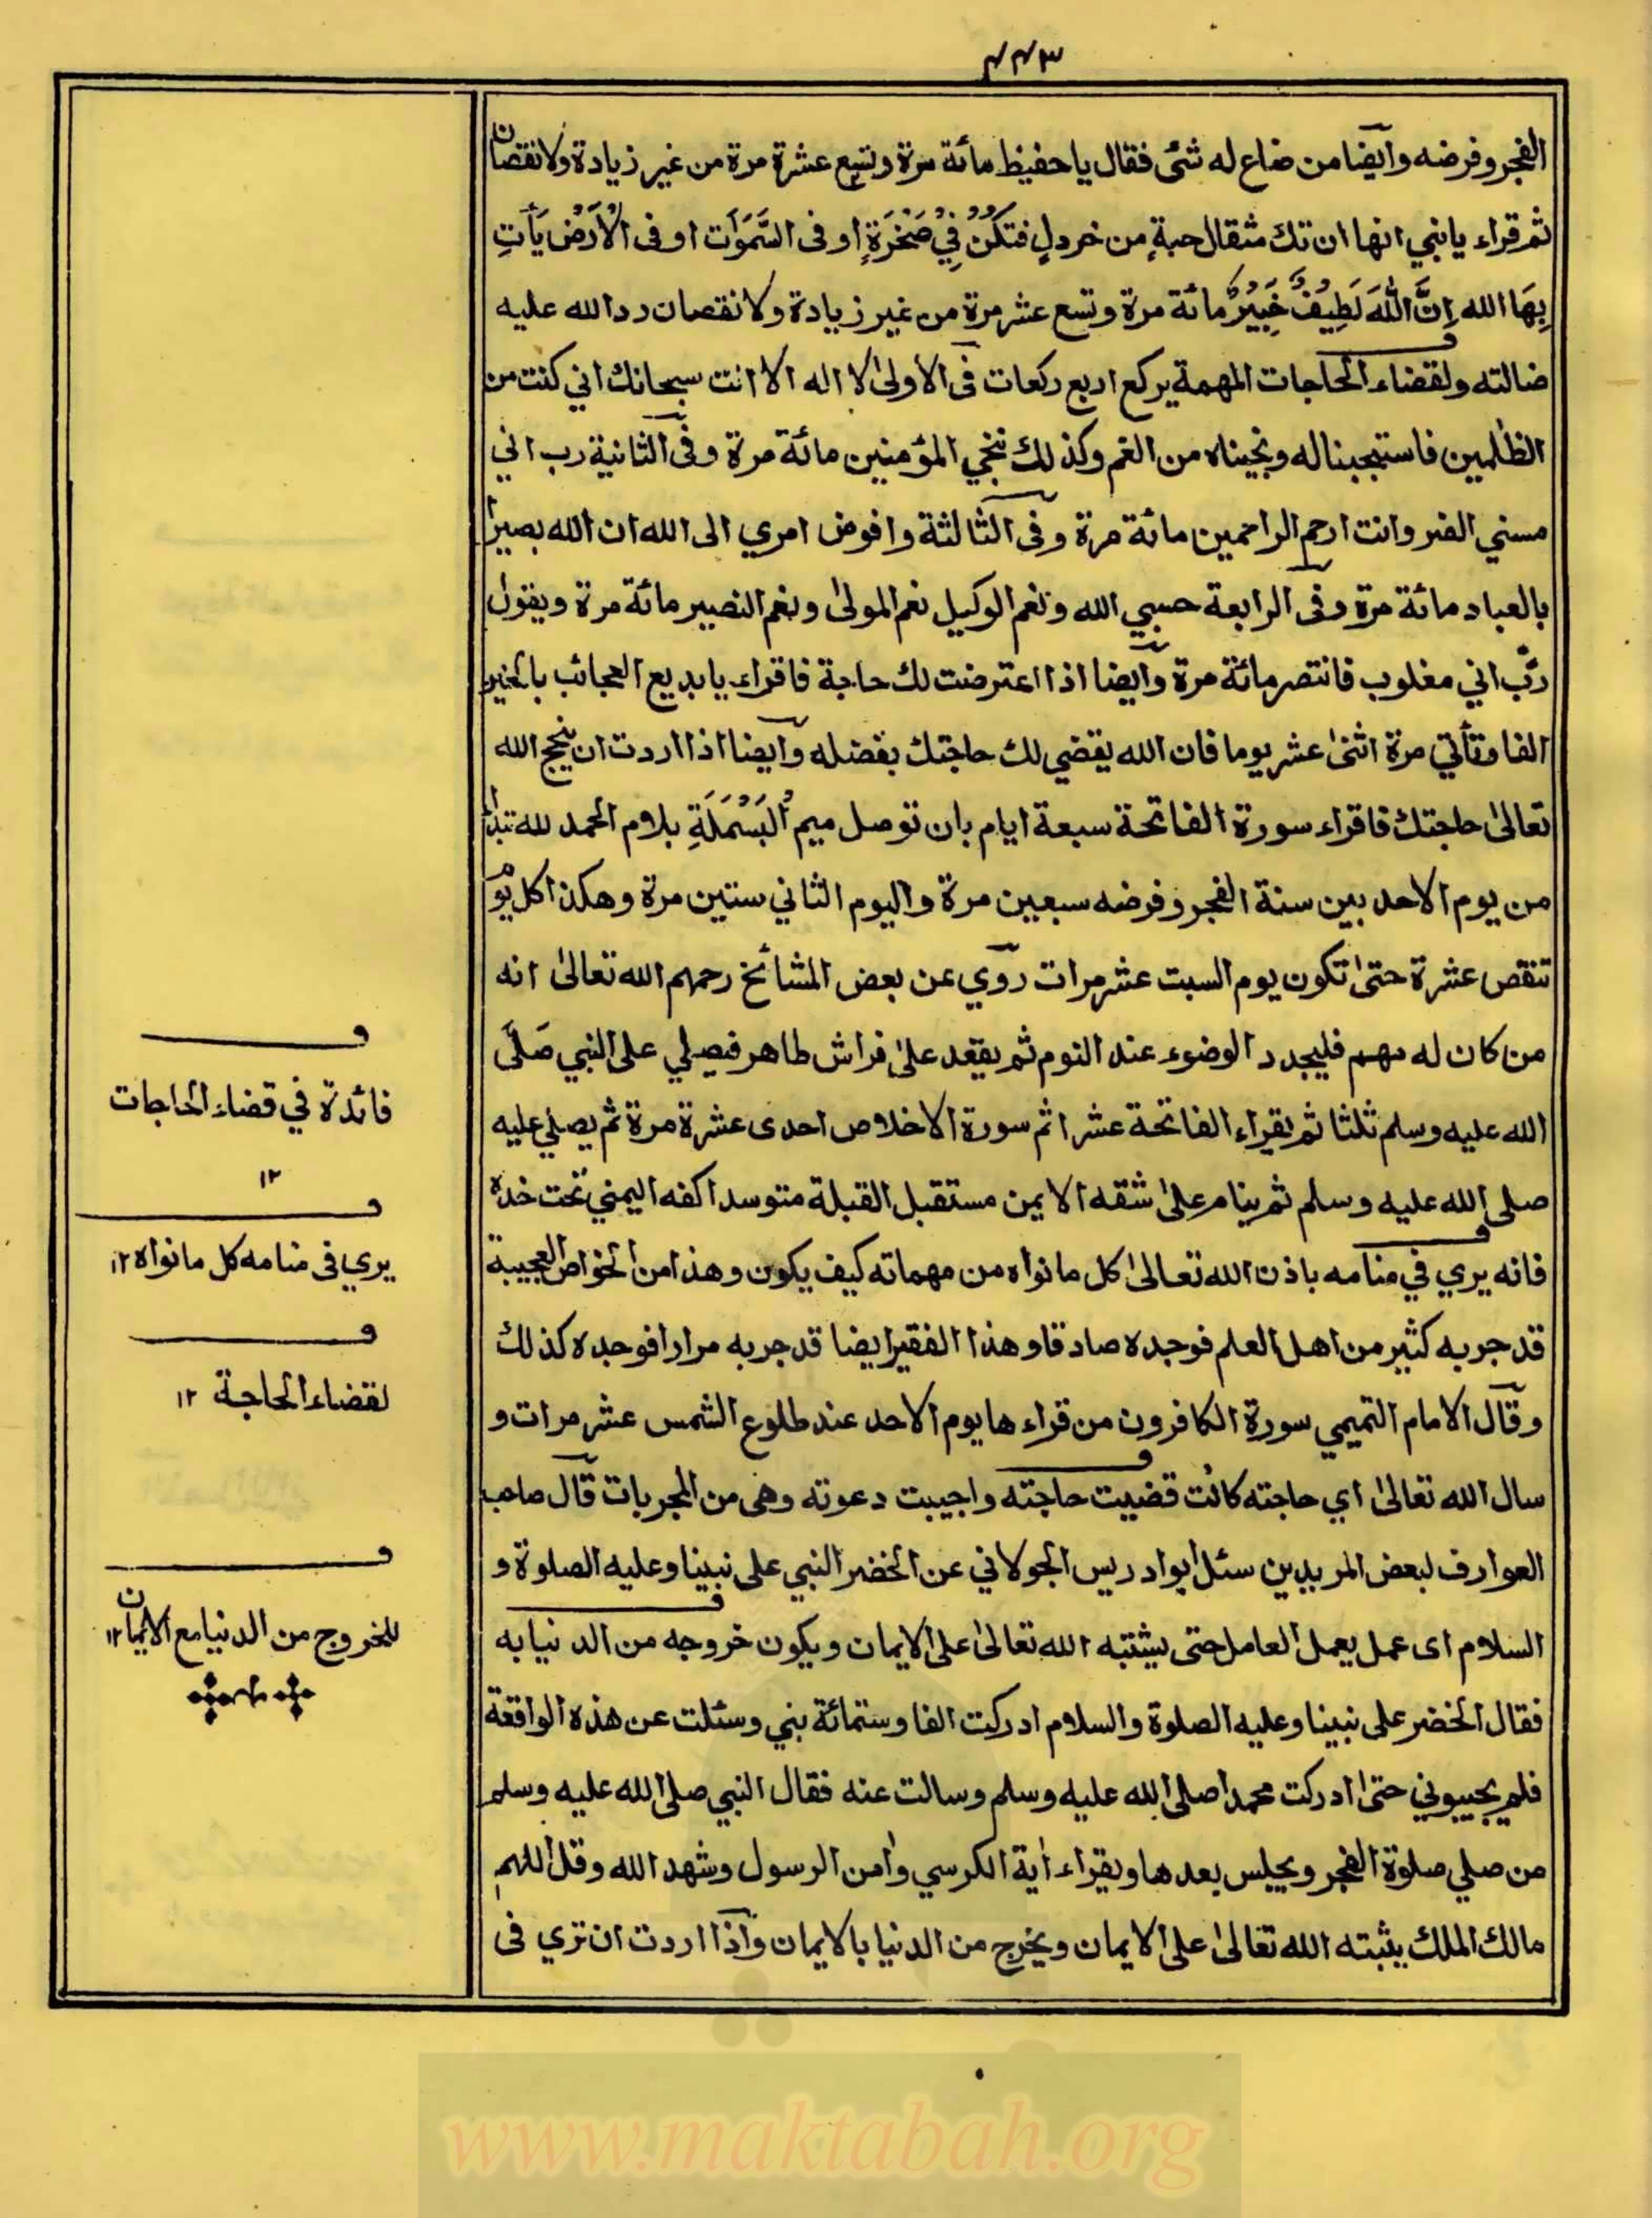 ٤٤٣
الفجر وفرضه وايضا من ضاع له شئ فقال يا حفيظ مائة مرة وتسع عشرة مرة من غير زيادة ولا نقصان
ثم قراء يا بني انها ان تك مثقال حبةٍ من خردلٍ فتَكُنْ فِيْ صَخْرَةٍ او فى السَّمَوَات او فى الْاَرْضِ يَأْتِ
بِهَا الله اِنَّ اللهَ لَطِيْفٌ خَبِيْرٌ مائة مرة وتسع عشر مرة من غير زيادة ولا نقصان رد الله عليه
ضالته ولقضاء الحاجات المهمة يركع اربع ركعات فى الاولىٰ لا اله الا انت سبحانك اني كنت من
الظٰلمين فاستجبنا له ونجيناه من الغم وكذلك ننجي المؤمنين مائة مرة وفى الثانية رب اني
مسني الضر وانت ارحم الراحمين مائة مرة وفى الثالثة وافوض امري الى الله ان الله بصير
بالعباد مائة مرة وفى الرابعة حسبي الله ونعم الوكيل نعم المولىٰ ونعم النصير مائة مرة ويقول
ربّ اني مغلوب فانتصر مائة مرة وايضا اذا اعترضت لك حاجة فاقراء يا بديع العجائب بالخير
الفا ومأتي مرة اثنىٰ عشر يوما فان الله يقضي لك حاجتك بفضله وايضا اذا اردت ان ينجح الله
تعالىٰ حاجتك فاقراء سورة الفاتحة سبعة ايام بان توصل ميم اُلبَسْمَلَةِ بلام الحمد لله تبدأ
من يوم الاحد بين سنة الفجر وفرضه سبعين مرة واليوم الثاني ستين مرة وهكذا كل يوم
تنقص عشرة حتىٰ تكون يوم السبت عشر مرات روي عن بعض المشائخ رحمهم الله تعالىٰ انه
من كان له مهم فليجدد الوضوء عند النوم ثم يقعد علىٰ فراش طاهر فيصلي على النبي صَلَّى
الله عليه وسلم ثلثا ثم يقراء الفاتحة عشرا ثم سورة الاخلاص احدى عشرة مرة ثم يصلي عليه
صلى الله عليه وسلم ثم ينام علىٰ شقه الايمن مستقبل القبلة متوسدا كفه اليمني تحت خده
فانه يري في منامه باذن الله تعالىٰ كل ما نواه من مهماته كيف يكون وهذا من الخواص العجيبة
قد جربه كثير من اهل العلم فوجده صادقا وهذا الفقير ايضا قد جربه مرارا فوجده كذلك
وقال الامام التميمي سورة الكافرون من قراءها يوم الاحد عند طلوع الشمس عشر مرات و
سال الله تعالىٰ اي حاجته كانت قضيت حاجته واجيبت دعوته وهى من المجربات قال صاحب
العوارف لبعض المريدين سئل ابو ادريس الجولاني عن الخضر النبي على نبينا وعليه الصلوة و
السلام اى عمل يعمل العامل حتى يثبته الله تعالىٰ على الايمان ويكون خروجه من الدنيا به
فقال الخضر على نبينا وعليه الصلوة والسلام ادركت الفا وستمائة بني وسئلت عن هذه الواقعة
فلم يجيبوني حتىٰ ادركت محمدا صلى الله عليه وسلم وسالت عنه فقال النبي صلى الله عليه وسلم
من صلي صلوة الفجر ويجلس بعدها ويقراء أية الكرسي وأمن الرسول وشهد الله وقل اللهم
مالك الملك يثبته الله تعالىٰ على الايمان ويخرج من الدنيا بالايمان واذا اردت ان تري فى
فائدة في قضاء الحاجات
١٢
يري فى منامه كل ما نواه ١٢
لقضاء الحاجة ١٢
للخروج من الدنيا مع الايمان ١٢
www.maktabah.org